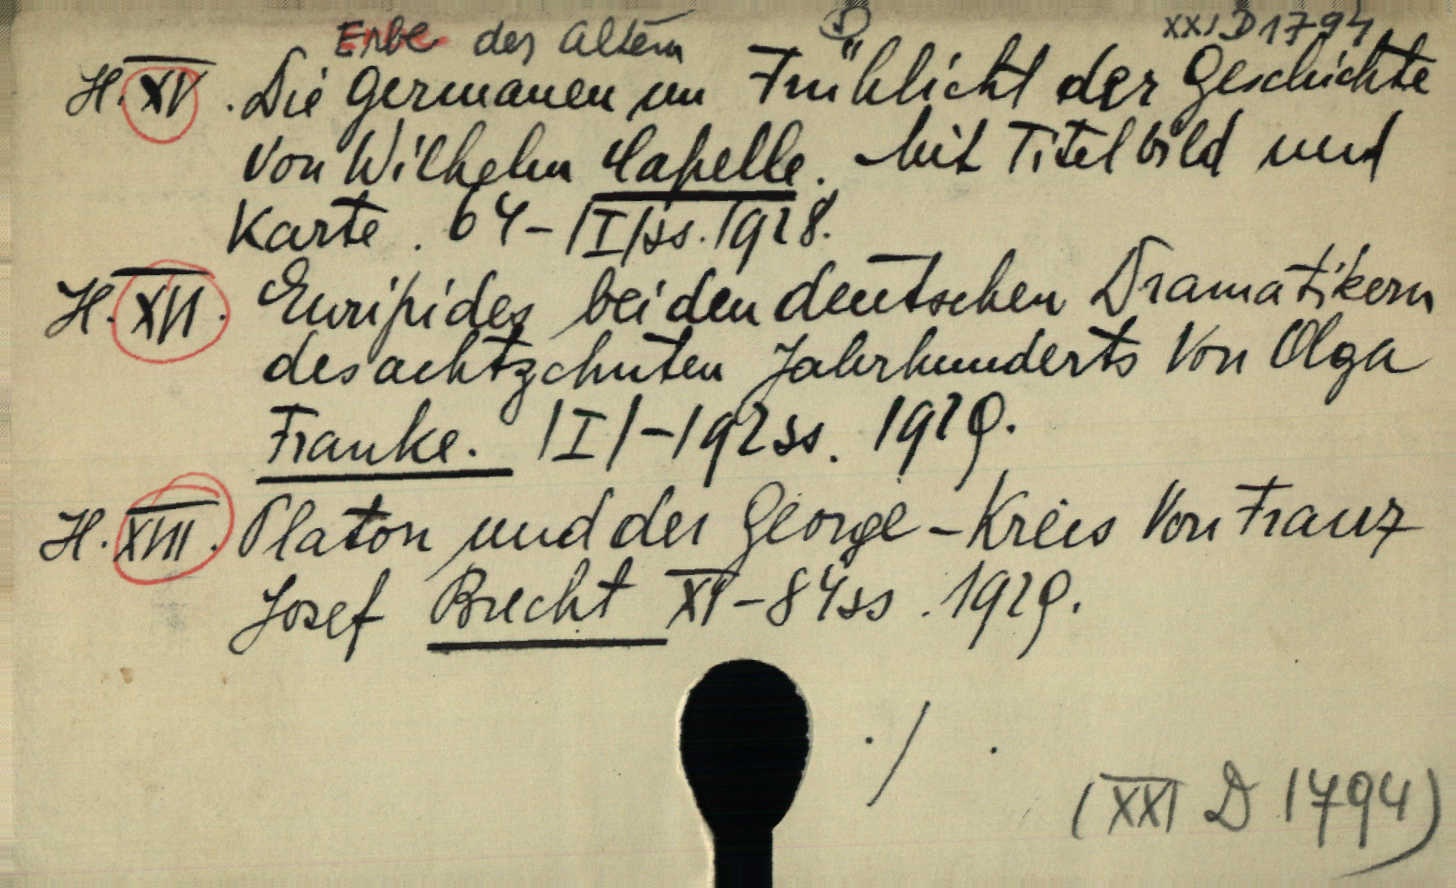 Erbe des Altern ⑤ XXI D 1794
H. XV. Die Germanen im Frühlicht der Geschichte
Von Wilhelm Capelle. Mit Titelbild und
Karte. 64-|I|ss. 1928.
H. XVI. Euripides bei den deutschen Dramatikern
des achtzehnten Jahrhunderts Von Olga
Franke. |I|-192ss. 1929.
H. XVIII. Platon und der George-Kreis Von Franz
Josef Brecht XI-84ss. 1929.
./.
(XXI D 1794)